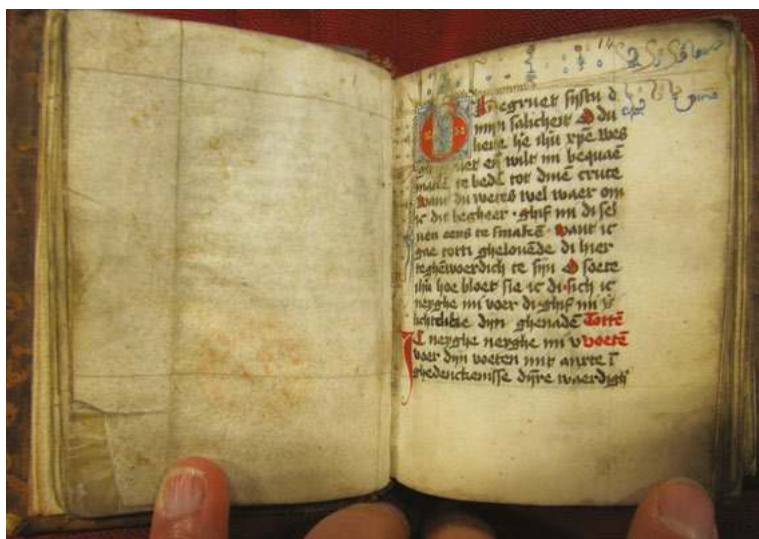 egruet sijstu d
mijn salicheit O du
lieue hē ihū xpē wes
en̄ wilt mi bequaē
te bedē tot dinē cruce
want du weets wel waer om
ic dit begheer ghif mi di sel
uen eens te smakē want ic
gae totti ghelouēde di hier
teghēwoerdich te sijn O soete
ihū hoe bloet sie ic di sich ic
neyghe mi voer di ghif mi
dijn ghenadē Tottē
IC neyghe neyghe mi v voetē
voer dijn voeten mit anxte ī
ghedenckenisse dijre waerdigh